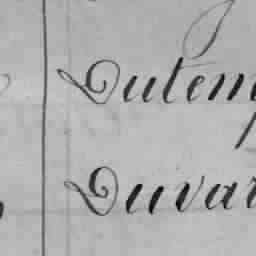 Dutem
Duvar